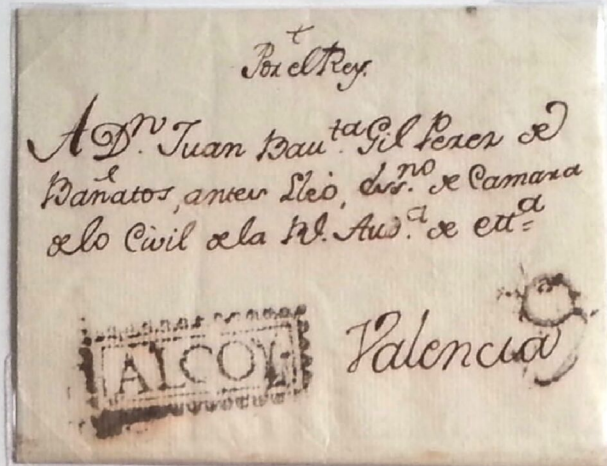 Por el Rey.
A Dn. Juan Bauta. Gil Perez de
Bañatos, antes Lleò, Essno. de Camara
de lo Civil de la Rl. Auda. de etta=
Valencia
ALCOY